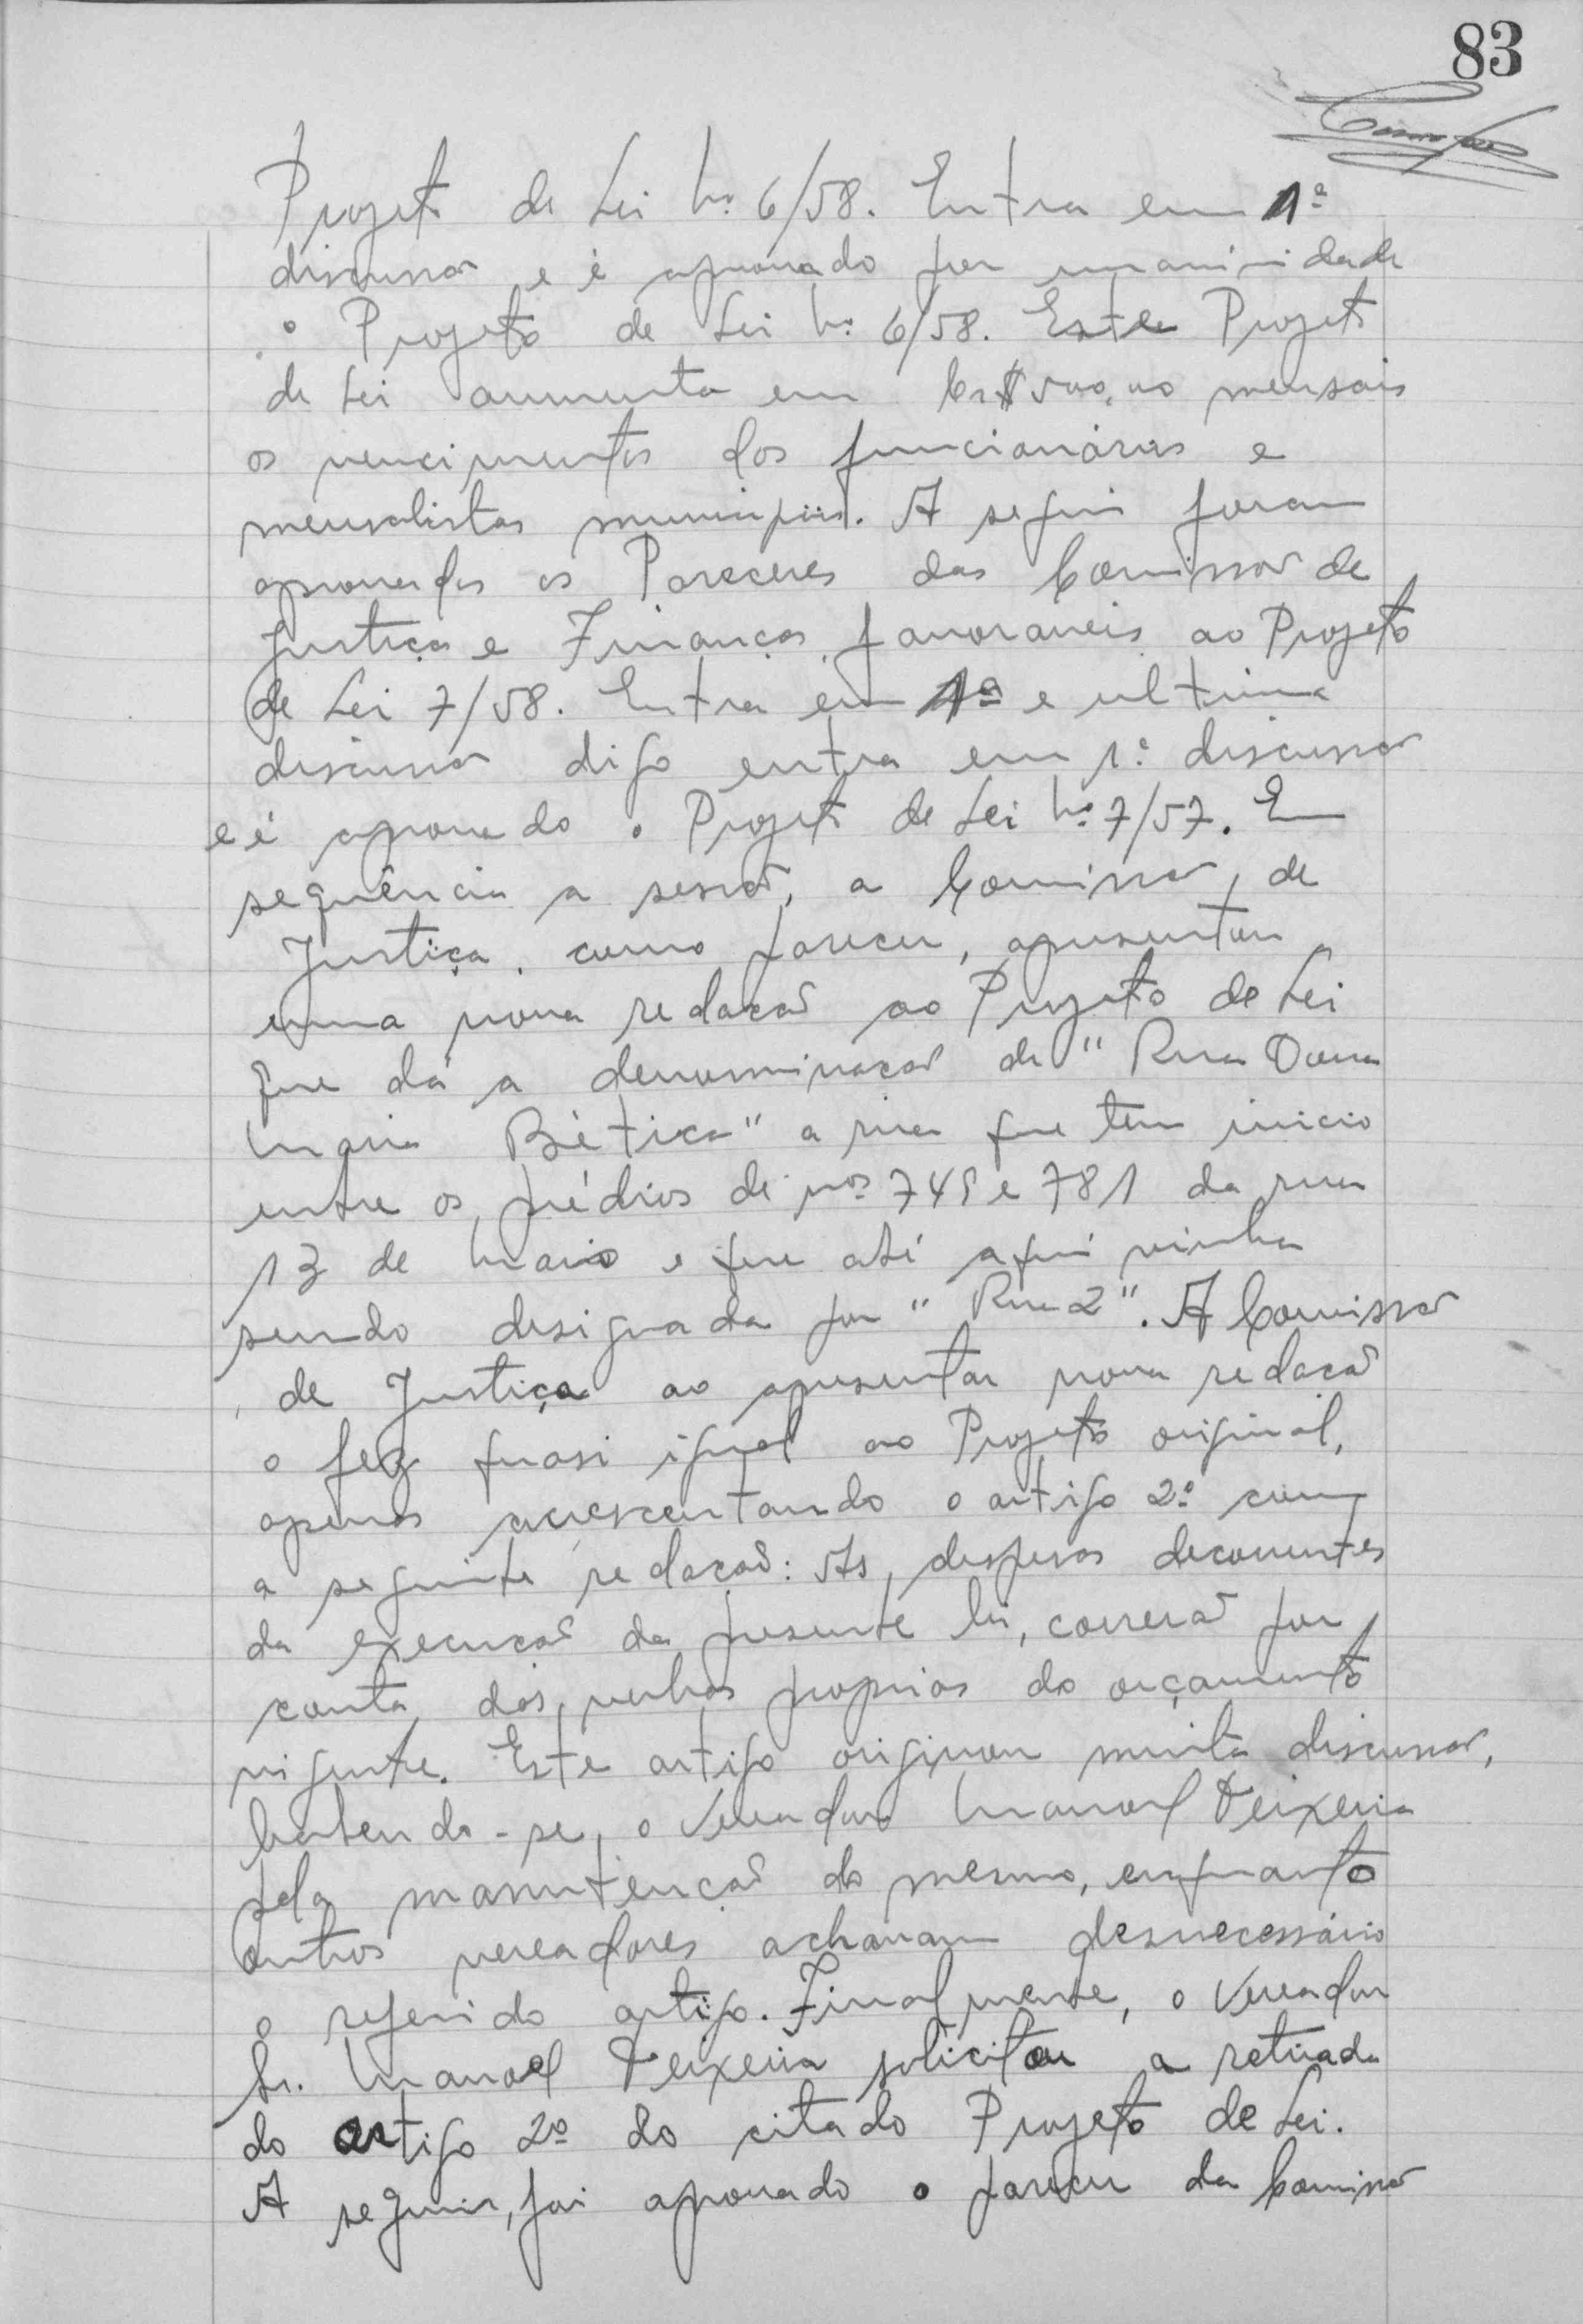 83
Projeto de Lei Nº 6/58. Entra em 1ª
discussão e é aprovado por unanimidade
o Projeto de Lei Nº 6/58. Este Projeto
de Lei aumenta em Cr$ 500,00 mensais
os vencimentos dos funcionários e
mensalistas municipais. A seguir foram
aprovados os Pareceres das Comissão de
Justiça e Finanças, favoraveis ao Projeto
de Lei 7/58. Entra em 1ª e ultima
discussão digo entra em 1ª discussão
e é aprovado o Projeto de Lei Nº 7/57. Em
sequência a sessão, a Comissão de
Justiça, como parecer, apresentou
uma nova redação ao Projeto de Lei
que dá a denominação de "Rua Dona
Maria Bética" a rua que tem inicio
entre os prédios de nºs 745 e 781 da rua
13 de Maio e que até aqui vinha
sendo designada por "Rua 2". A Comissão
de Justiça ao apresentar nova redação
o fez quasi igual ao Projeto original,
apenas acrescentando o artigo 2º com
a seguinte redação: As despesas decorrentes
da execução da presente lei, correrão por
conta das verbas proprias do orçamento
vigente. Este artigo originou muita discussão,
batendo-se, o Vereador Manoel Teixeira
pela manutenção do mesmo, enquanto
outros vereadores achavam desnecessário
o referido artigo. Finalmente, o Vereador
Sr. Manoel Teixeira solicitou a retirada
do artigo 2º do citado Projeto de Lei.
A seguir, foi aprovado o parecer da Comissão